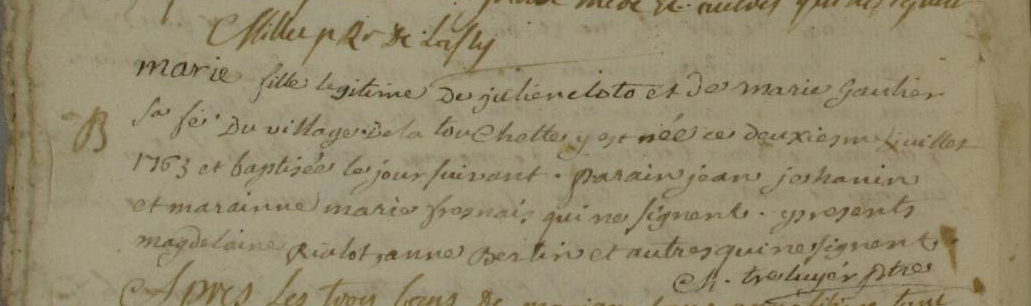 et autres qui
marie fille legitime De julien cloto et de marie Gautier
sa fẽ. Du village de la touChette y est née ce deuxiesme juillet
B
1763 et baptisée le jour suivant. parain jean jehanin
et marainne marie fresnais qui ne signent. presents
magdelaine Riulot, anne Bertin et autres qui ne signent.
ptre
Apres les trois bans de